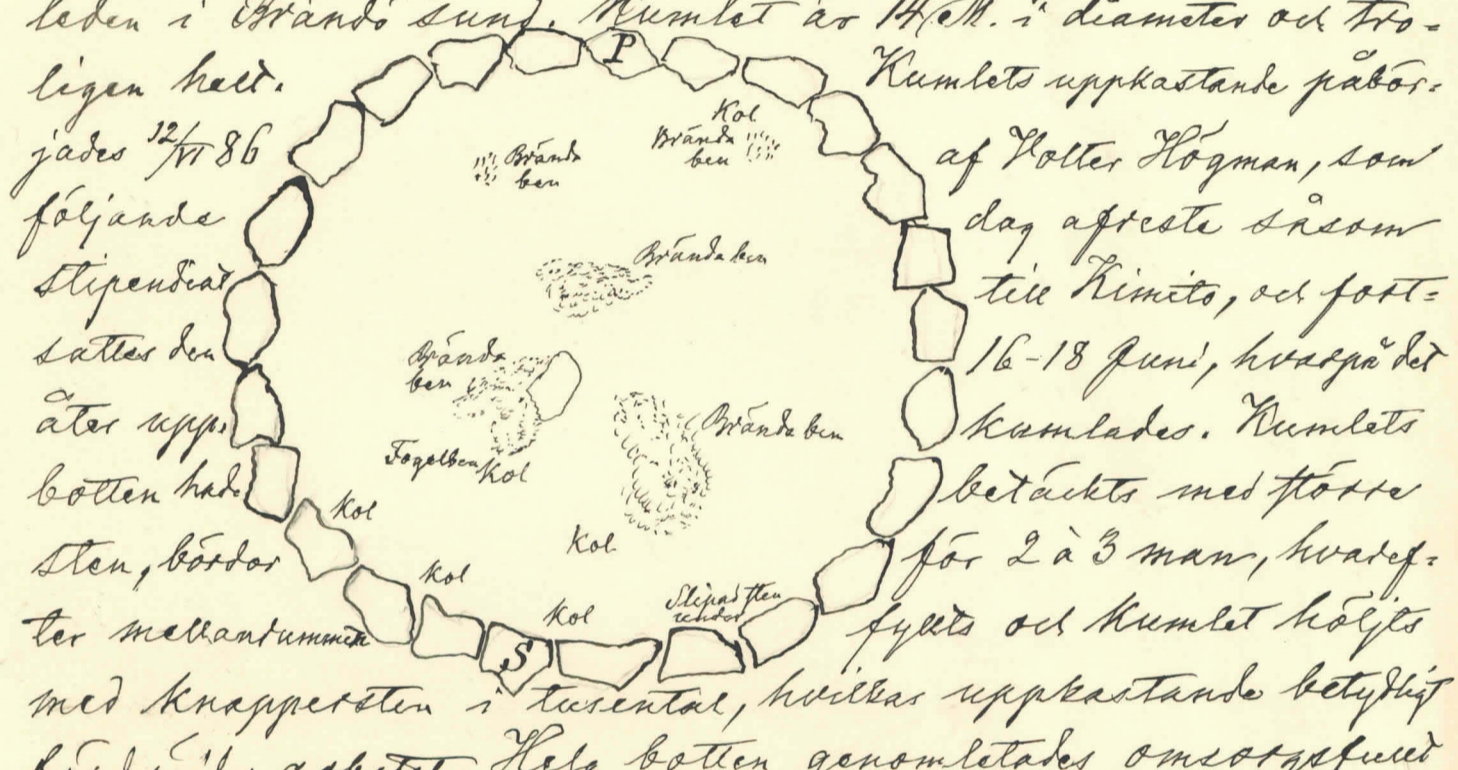 leden i Brändö sund. Kumlet är 14 M. i diameter och tro=
ligen helt. Kumlets uppkastande påbör=
jades 12/VI 86 af Volter Högman, som
följande dag afreste såsom
stipendiat till Kimito, och fort=
sattes den 16-18 Juni, hvarpå det
åter upp. kumlades. Kumlets
botten hade betäckts med större
sten, bördor för 2 à 3 man, hvaref=
ter mellanrummen fyllts och Kumlet höljts
med knappersten i tusental, hvilkas uppkastande betydligt
arbetet Hela botten genomletades omsorgsfullt
P
Kol
Brända
ben
Brända
ben
Brända ben
Brända
ben
Brända ben
Fogelben Kol
Kol
Kol
Kol
Kol
Slipad sten
under
S